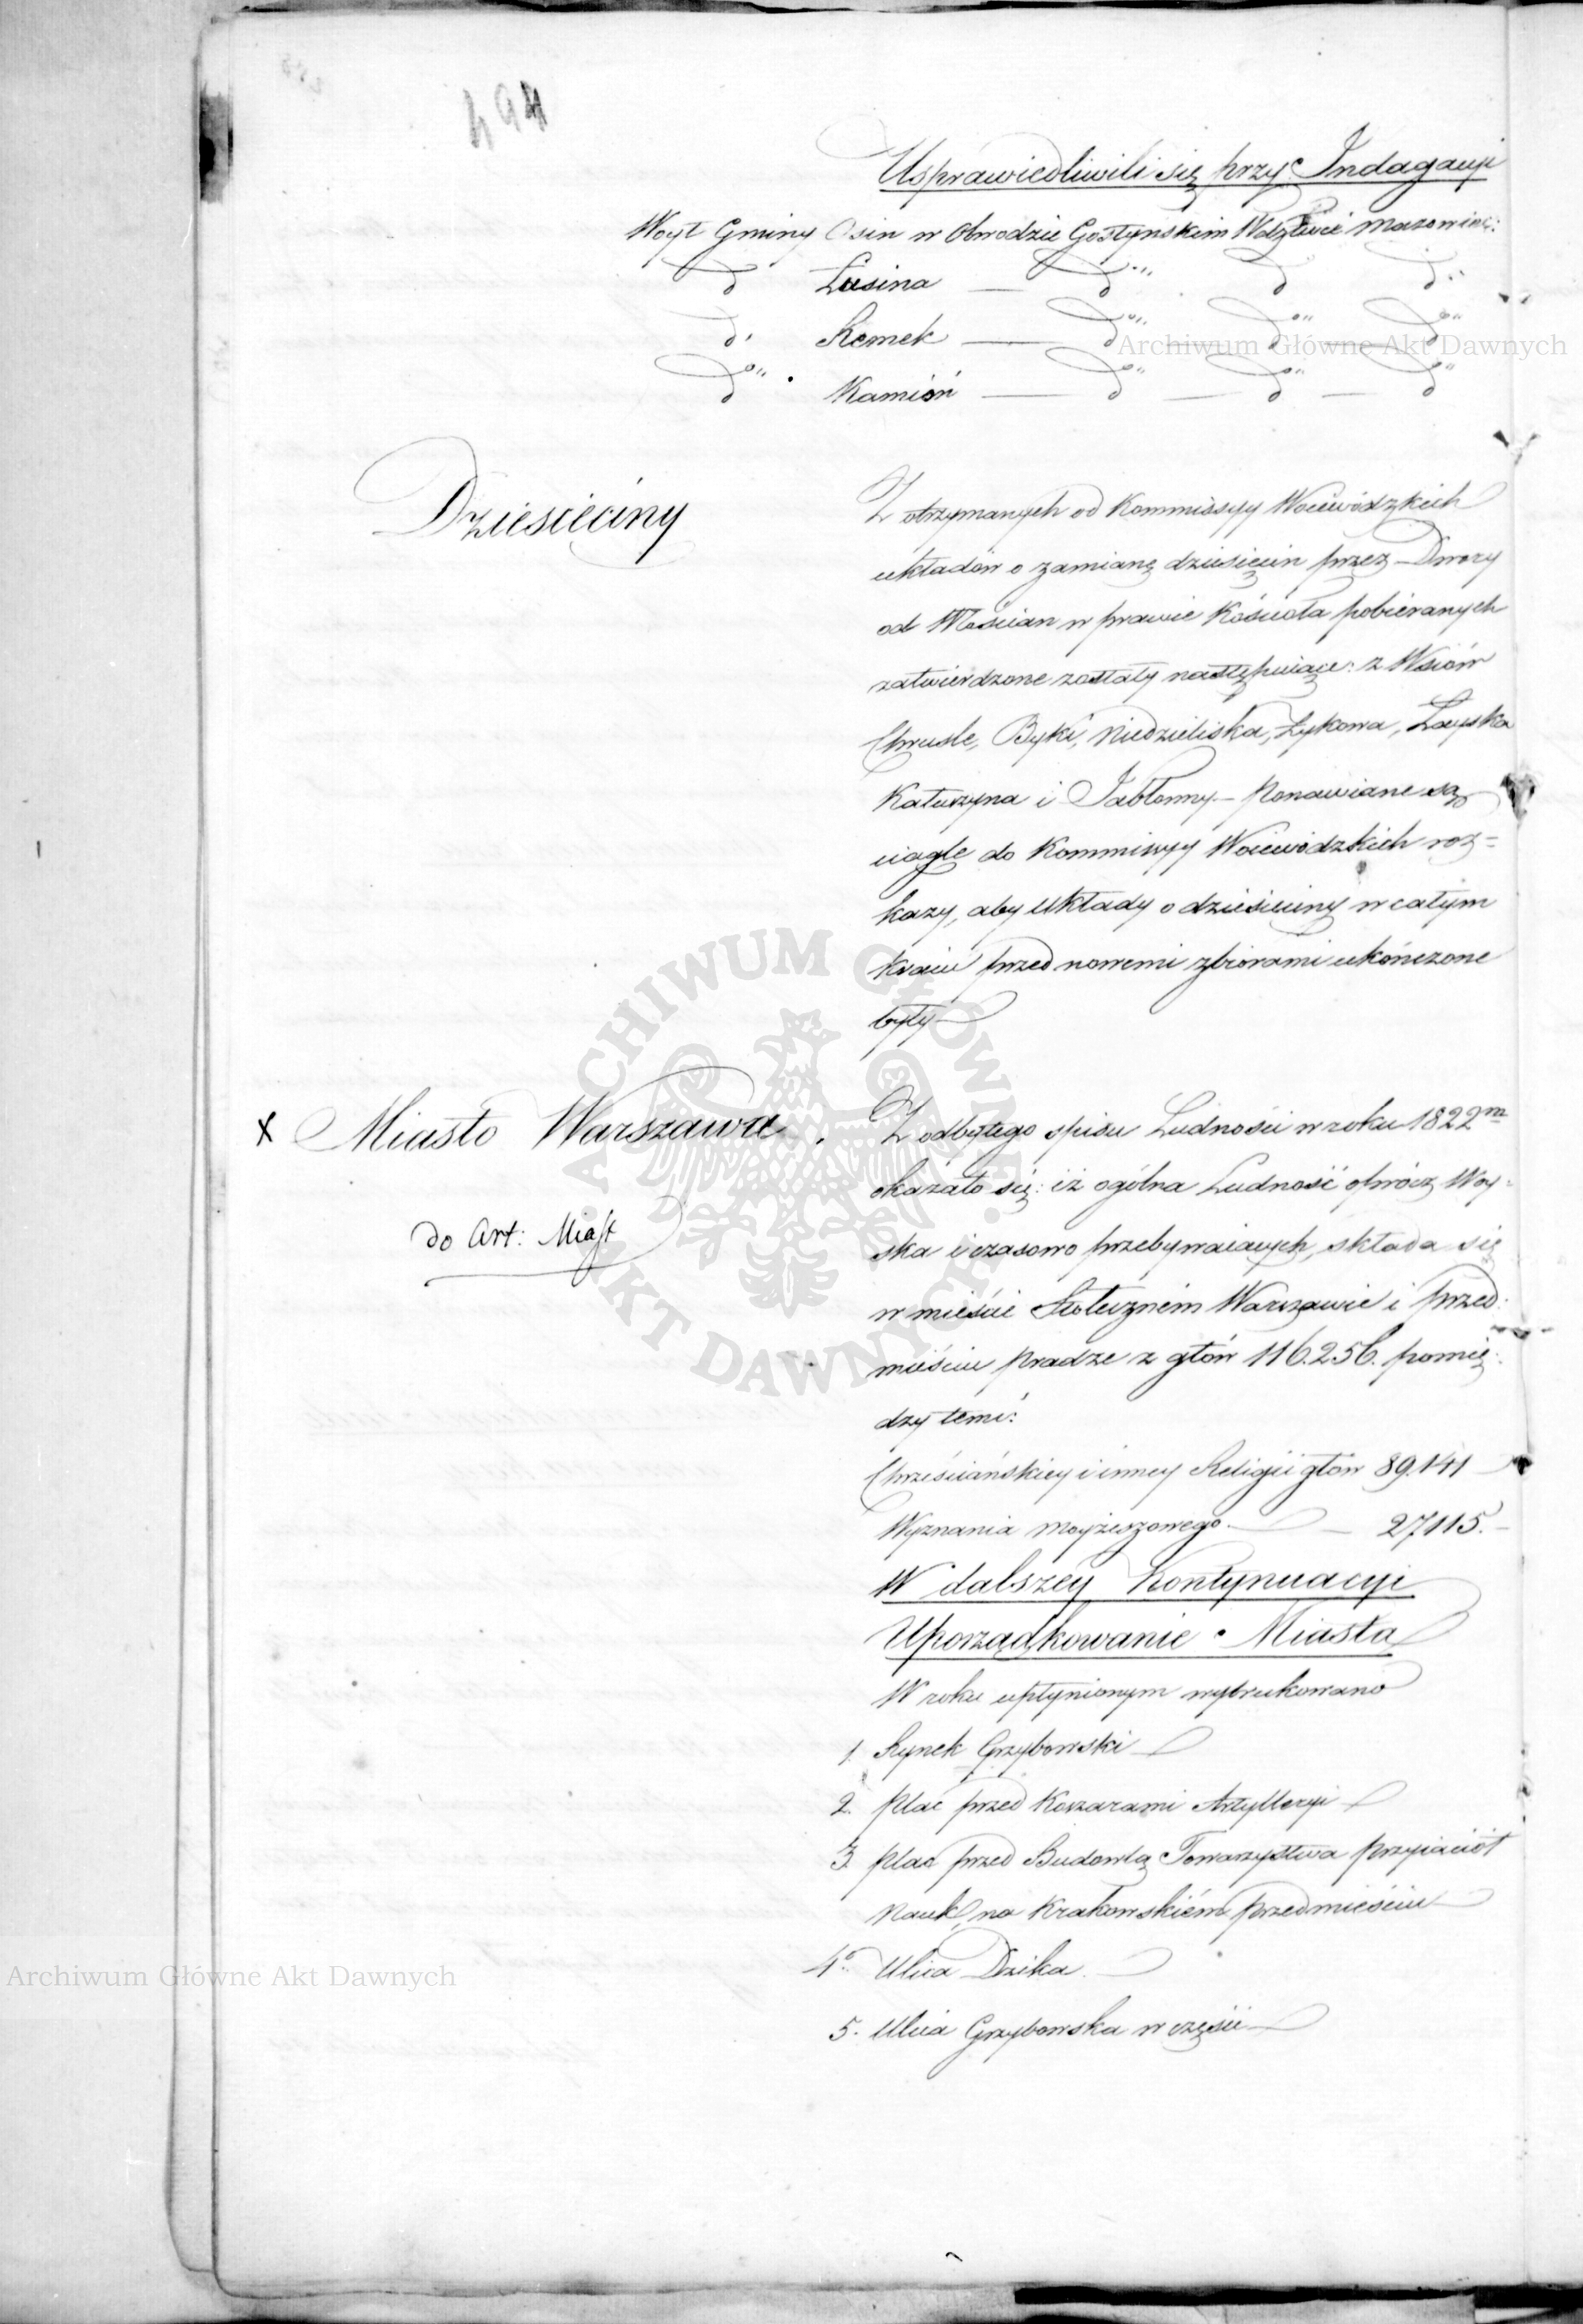 494
Usprawiedliwili się przy Indagacyi
Woyt Gminy Osin w Obwodzie Gostynskim Wdztwie Mazowiec:
d Lusina — d d d
d Romek — d d d
d Kamión — d d d
Archiwum Główne Akt Dawnych
Dziesięciny
Z otrzymanych od Kommissyy Woiewódzkich
układów o zamianę dziesięcin przez Dwory
od Włościan w prawie Kościoła pobieranych
zatwierdzone zostały następuiące: z Wsiów
Chruśle, Byki, Niedzieliska, Łykowa,
Kałuszyna i Jabłonny — Ponawiane są
ciągle do Kommissyy Woiewódzkich roz=
kazy, aby układy o dziesięciny w całym
Kraiu przed nowemi zbiorami ukończone
były
x Miasto Warszawa.
do Art: Miast
Z odbytego spisu Ludności w roku 1822m
okazało się: iż ogólna Ludność oprócz Woy=
ska i czasowo przebywaiących, składa się
w mieście Stołeczném Warszawie i przed:
mieściu Pradze z głów 116.256. pomię:
dzy temi:
Chrześciańskiey i inney Religii głów 89.141
Wyznania Moyżeszowego — 27115.
W dalszey Kontynuacyi
Uporządkowanie Miasta
W roku upłynionym wybrukowano
1. Rynek Grzybowski
2. Plac przed Koszarami Artylleryi
3. Plac przed Budowlą Towarzystwa Przyiaciół
Nauk, na Krakowskiém Przedmieściu
4. Ulica Dzika.
5. Ulica Grzybowska w części
ARCHIWUM GŁÓWNE AKT DAWNYCH
Archiwum Główne Akt Dawnych